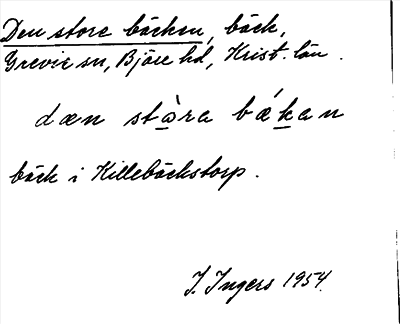 Den store bäcken, bäck,
Grevie sn, Bjäre hd, Krist. län.
dæn stò̱ra bǽḵan
bäck i Killebäckstorp.
I. Ingers 1954.